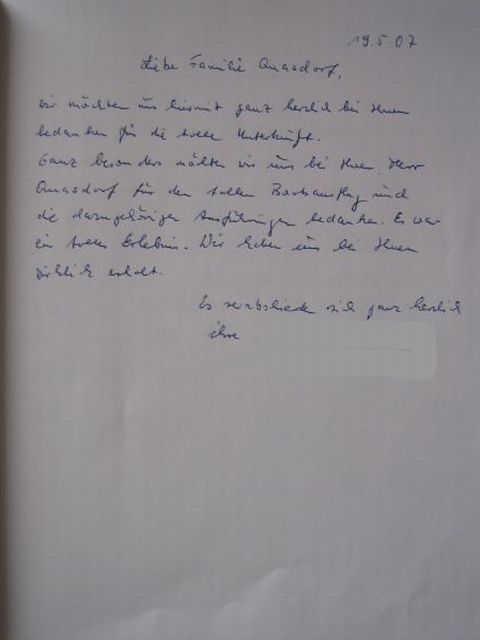 19.5.07
Liebe Familie Quasdorf,
wir möchten uns hiermit ganz herzlich bei Ihnen
bedanken für die tolle Unterkunft.
Ganz besonders möchten wir uns bei Ihnen, Herr
Quasdorf für den tollen Bootsausflug und
die dazugehörigen Ausführungen bedanken. Es war
ein tolles Erlebnis. Wir haben uns bei Ihnen
wirklich erholt.
Es verabschieden sich ganz herzlich
ihre